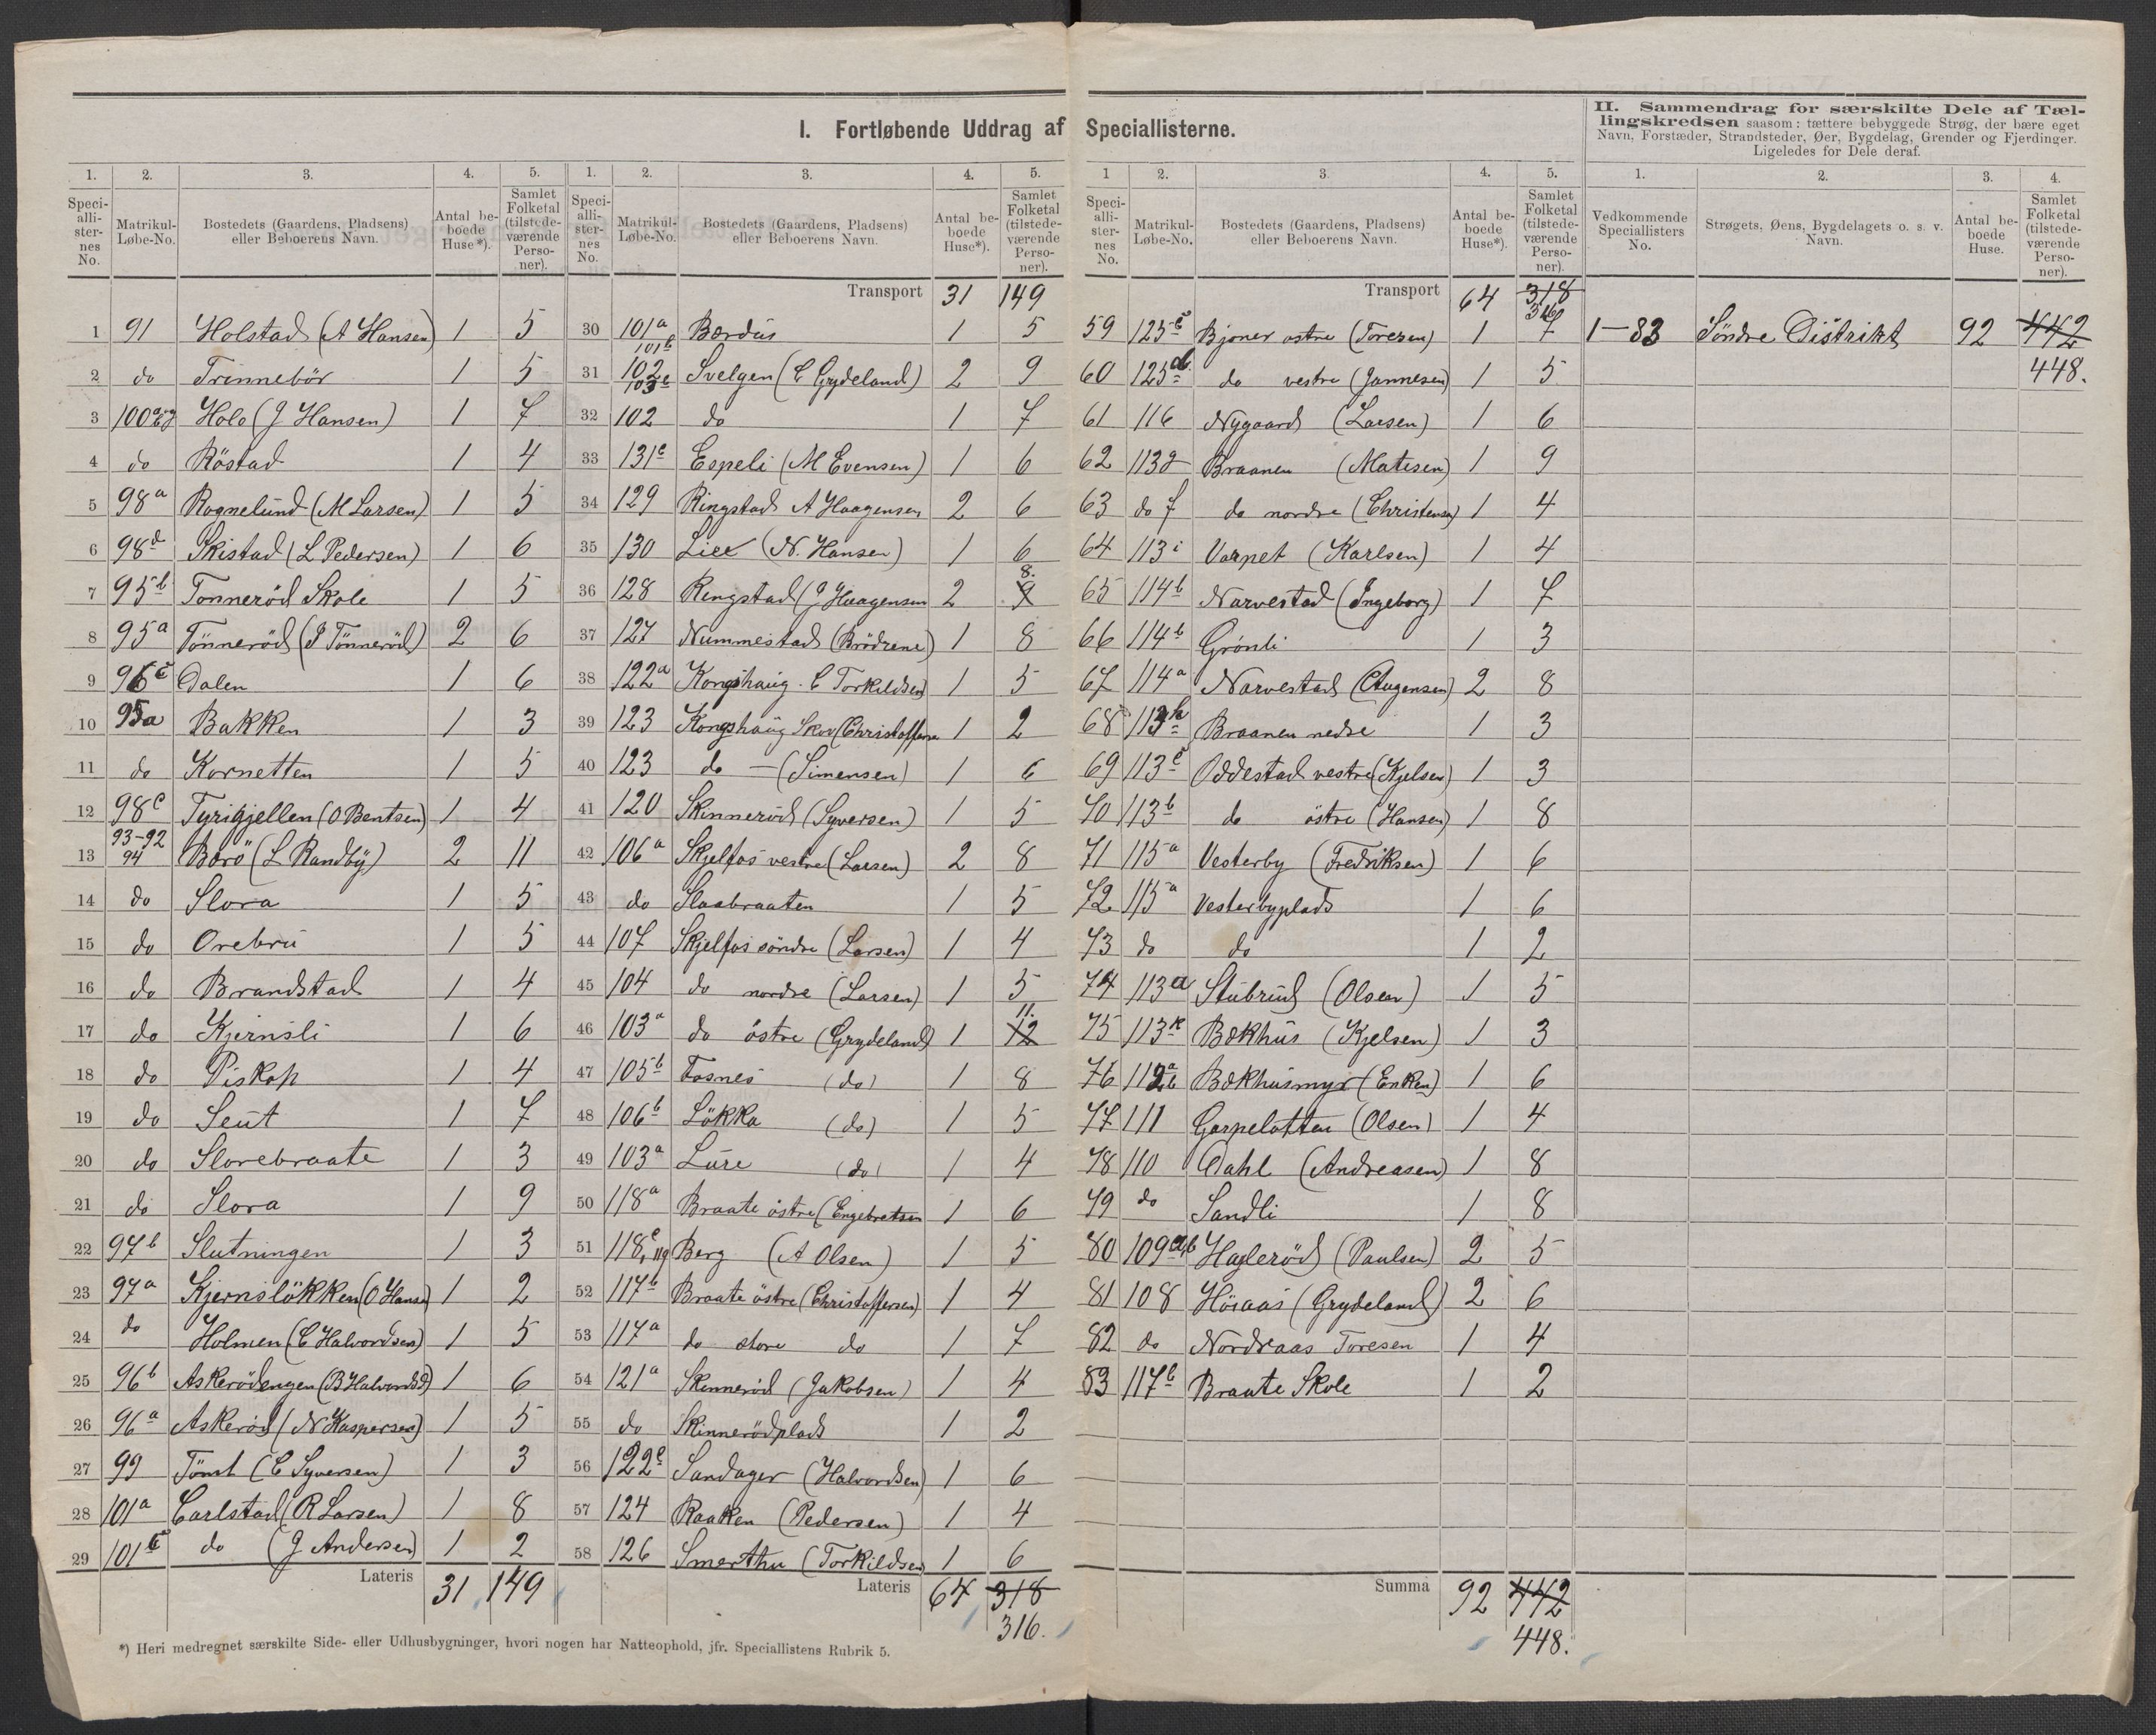 I. Fortløbende Uddrag af Speciallisterne.
II. Sammendrag for særskilte Dele af Tæl-
lingskredsen saasom: tættere bebyggede Strøg, der bære eget
Navn, Forstæder, Strandsteder, Øer, Bygdelag, Grender og Fjerdinger.
Ligeledes for Dele deraf.
1. 2. 3. 4. 5.
Speciallisternes No. Matrikul-Løbe-No. Bostedets (Gaardens, Pladsens) eller Beboerens Navn. Antal beboede Huse*). Samlet Folketal (tilstedeværende Personer).
1 91 Holstad (A Hansen) 1 5
2 do Trinnebör 1 5
3 100 Holo (J Hansen) 1 7
4 do Röstad 1 4
5 98a Rognelund (M Larsen) 1 5
6 98d Skistad (L Pedersen) 1 6
7 95b Tönneröd Skole 1 5
8 95a Tönneröd (J Tönneröd) 2 6
9 95c Dalen 1 6
10 95a Bakken 1 3
11 do Kornetten 1 5
12 98c Tyrigjellen (O Bentsen) 1 4
13 93-92 94 Borö (L Randby) 2 11
14 do Slora 1 5
15 do Orebru 1 5
16 do Brandstad 1 4
17 do Kjernsli 1 6
18 do Piskop 1 4
19 do Seut 1 7
20 do Slorebraate 1 3
21 do Slora 1 9
22 97b Slutningen 1 3
23 97a Kjernslökken (O Hansen) 1 2
24 do Holmen (C Halvordsen) 1 5
25 96b Askerödengen (B Halvordsd) 1 6
26 96a Askeröd (N Kaspersen) 1 5
27 99 Tömt (C Syversen) 1 3
28 101a Carlstad (R Larsen) 1 8
29 101c do (J Andersen) 1 2
Lateris 31 149
1. 2. 3. 4. 5.
Speciallisternes No. Matrikul-Løbe-No. Bostedets (Gaardens, Pladsens) eller Beboerens Navn. Antal beboede Huse*). Samlet Folketal (tilstedeværende Personer).
Transport 31 149
30 101a 101b Bærdus 1 5
31 102 103c Svelgen (C Grydeland) 2 9
32 102 do 1 7
33 131c Espeli (M Evensen) 1 6
34 129 Ringstad A Haagensen 2 6
35 130 Lier (N. Hansen) 1 6
36 128 Ringstad (J Haagensen 2 9 8.
37 127 Nummestad (Brödrene) 1 8
38 122a Kongshaug. C Torkildsen 1 5
39 123 Kongshaug Skov (Christoffersen 1 2
40 123 do — (Simensen) 1 6
41 120 Skinneröd (Syversen) 1 5
42 106a Skjelfos vestre (Larsen) 2 8
43 do Slaabraaten 1 5
44 107 Skjelfos söndre (Larsen) 1 4
45 104 do nordre (Larsen) 1 5
46 103a do östre (Grydeland) 1 12 11.
47 105b Fosnes (do) 1 8
48 106b Lökka (do) 1 5
49 103a Lure (do) 1 4
50 118a Braate östre (Engebretsen 1 6
51 118c, 119 Berg (A Olsen) 1 5
52 117b Braate östre (Christoffersen) 1 4
53 117a do store do 1 7
54 121a Skinneröd (Jakobsen) 1 4
55 do Skinnerödplads 1 2
56 122c Sandager (Halvordsen) 1 6
57 124 Raaken (Pedersen) 1 4
58 126 Smerthu (Torkildsen 1 6
Lateris 64 318
316.
1 2. 3. 4. 5.
Speciallisternes No. Matrikul-Løbe-No. Bostedets (Gaardens, Pladsens) eller Beboerens Navn. Antal beboede Huse*). Samlet Folketal (tilstedeværende Personer).
Transport 64 318
316
59 125c Bjoner östre (Toresen) 1 7
60 125d do vestre (Jannesen) 1 5
61 116 Nygaard (Larsen) 1 6
62 113g Braanen (Matisen) 1 9
63 do f do nordre (Christensen) 1 4
64 113i Varpet (Karlsen) 1 4
65 114b Narvestad (Ingeborg) 1 7
66 114b Grönli 1 3
67 114a Narvestad (Augensen) 2 8
68 113h Braanen nedre 1 3
69 113c Oddestad vestre (Kjelsen) 1 3
70 113b do östre (Hansen) 1 8
71 115a Vesterby (Fredriksen) 1 6
72 115a Vesterbyplads 1 6
73 do do 1 2
74 113a Stubrud (Olsen) 1 5
75 113k Bækhus (Kjelsen) 1 3
76 112ab Bækhusmyr (Enken) 1 6
77 111 Garpelotten (Olsen) 1 4
78 110 Dahl (Andreasen) 1 8
79 do Sandli 1 8
80 109ab Hagleröd (Paulsen) 2 5
81 108 Höiaas (Grydeland) 2 6
82 do Nordraas Toresen 1 4
83 117b Braate Skole 1 2
Summa 92 442
448.
1. 2. 3. 4.
Vedkommende Speciallisters No. Strøgets, Øens, Bygdelagets o. s. v. Navn. Antal beboede Huse. Samlet Folketal (tilstedeværende Personer).
1—83 Söndre Distrikt 92 442
448.
*) Heri medregnet særskilte Side- eller Udhusbygninger, hvori nogen har Natteophold, jfr. Speciallistens Rubrik 5.